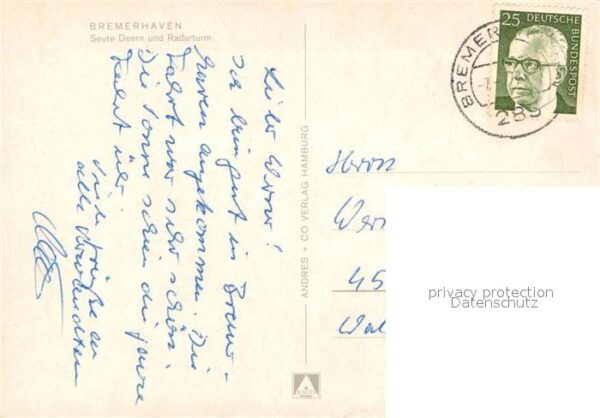 BREMERHAVEN
Seute Deern und Radarturm
Lieber Werner!
Ich bin gut in Bremer-
haven angekommen. Die
Fahrt war sehr schön.
Die Sonne schien die ganze
Fahrt über.
Viele Grüße an
alle Verwandten
ANDRES + CO VERLAG HAMBURG
25 DEUTSCHE
BUNDESPOST
BREMER
285
Herrn
Wer
45
Wal
privacy protection
Datenschutz